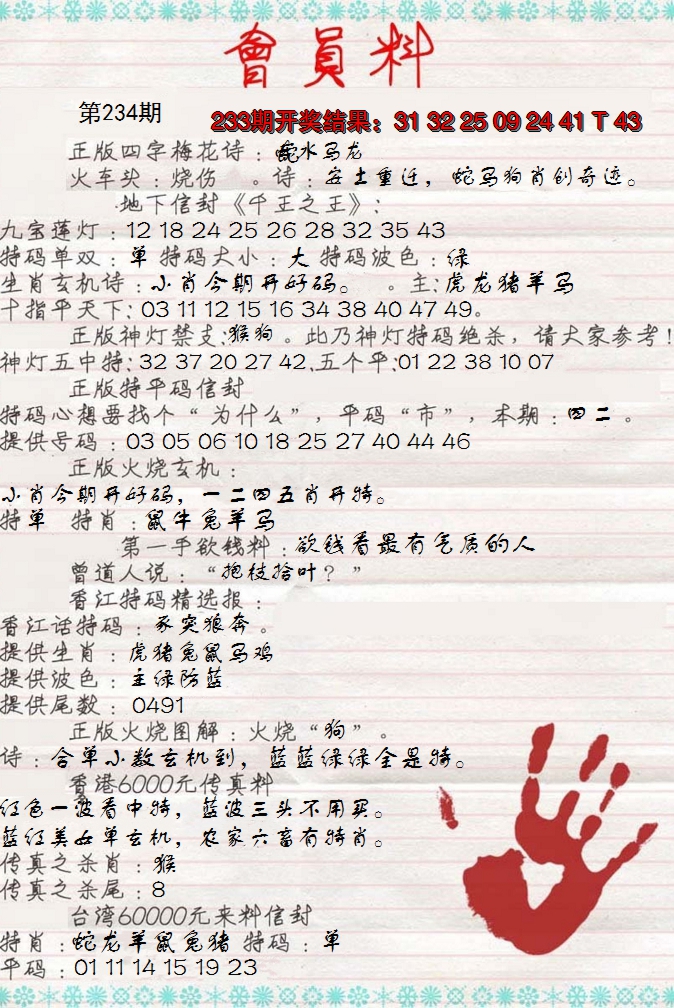 會員料
第234期
233期开奖结果：31 32 25 09 24 41 T 43
正版四字梅花诗：蛇水马龙
火车头：烧伤 。诗：安土重迁，蛇马狗肖创奇迹。
地下信封《千王之王》：
九宝莲灯：12 18 24 25 26 28 32 35 43
特码单双：单 特码大小：大 特码波色：绿
生肖玄机诗：小肖今期开好码。 。主：虎龙猪羊马
十指平天下：03 11 12 15 16 34 38 40 47 49。
正版神灯禁支：猴狗。此乃神灯特码绝杀，请大家参考！
神灯五中特：32 37 20 27 42.五个平：01 22 38 10 07
正版特平码信封
特码心想要找个“为什么”，平码“市”，本期：四二。
提供号码：03 05 06 10 18 25 27 40 44 46
正版火烧玄机：
小肖今期开好码，一二四五肖开特。
特单 特肖：鼠牛兔羊马
第一手欲钱料：欲钱看最有气质的人
曾道人说：“抱枝拾叶？”
香江特码精选报：
香江话特码：豕突狼奔。
提供生肖：虎猪兔鼠马鸡
提供波色：主绿防蓝
提供尾数：0491
正版火烧图解：火烧“狗”。
诗：合单小数玄机到，蓝蓝绿绿全是特。
香港6000元传真料
红色一波看中特，蓝波三头不用买。
蓝红美女单玄机，农家六畜有特肖。
传真之杀肖：猴
传真之杀尾：8
台湾60000元来料信封
特肖：蛇龙羊鼠兔猪 特码：单
平码：01 11 14 15 19 23